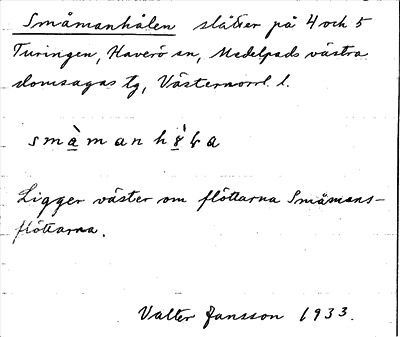 Småmanhålen slåtter på 4 och 5
Turingen, Haverö sn, Medelpads västra
domsagas tg, Västernorrl. l.
smàmanh
Ligger väster om flöttarna Småmans-
flöttarna.
Valter Jansson 1933.